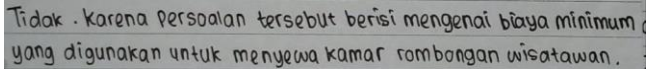 Tidak. karena persoalan tersebut berisi mengenai biaya minimum
yang digunakan untuk menyewa kamar rombongan wisatawan.